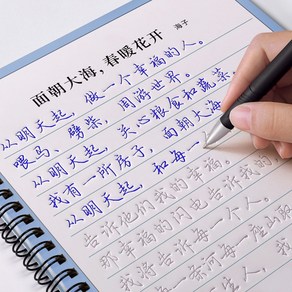 面朝大海，春暖花开
海子
从明天起，做一个幸福的人。
喂马、劈柴，周游世界。
从明天起，关心粮食和蔬菜，
我有一所房子，面朝大海
从明天起，和每一
告诉他们我的幸福。
那幸福的闪电告诉我的，
我将告诉每一个人。
每一条河每一座山取
生人，我